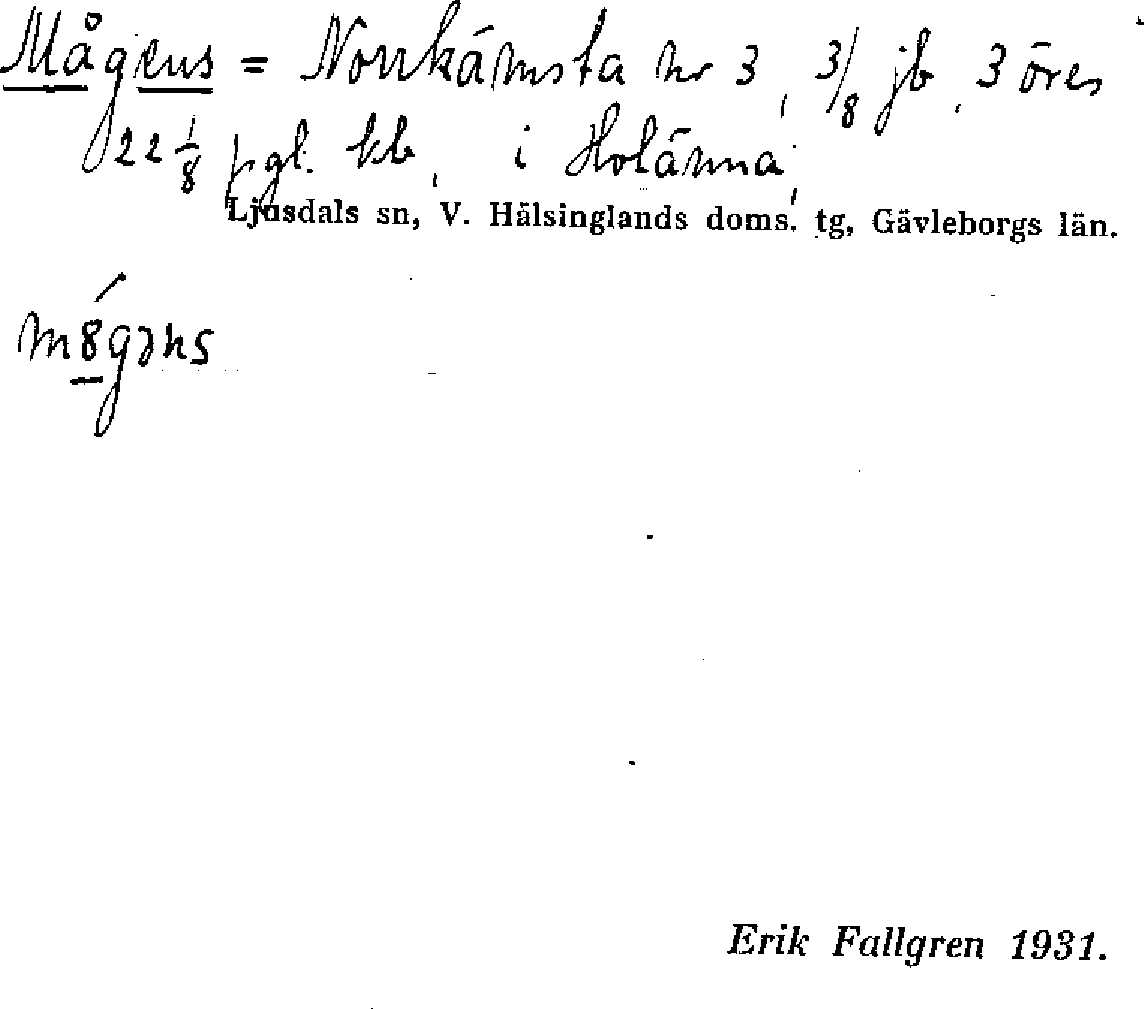 Mågens = Norrkämsta nr 3, 3/8 jb, 3 öres
22 1/8 pgl. kb, i Holänna,
Ljusdals sn, V. Hälsinglands doms. tg, Gävleborgs län.
m8́gəns
Erik Fallgren 1931.